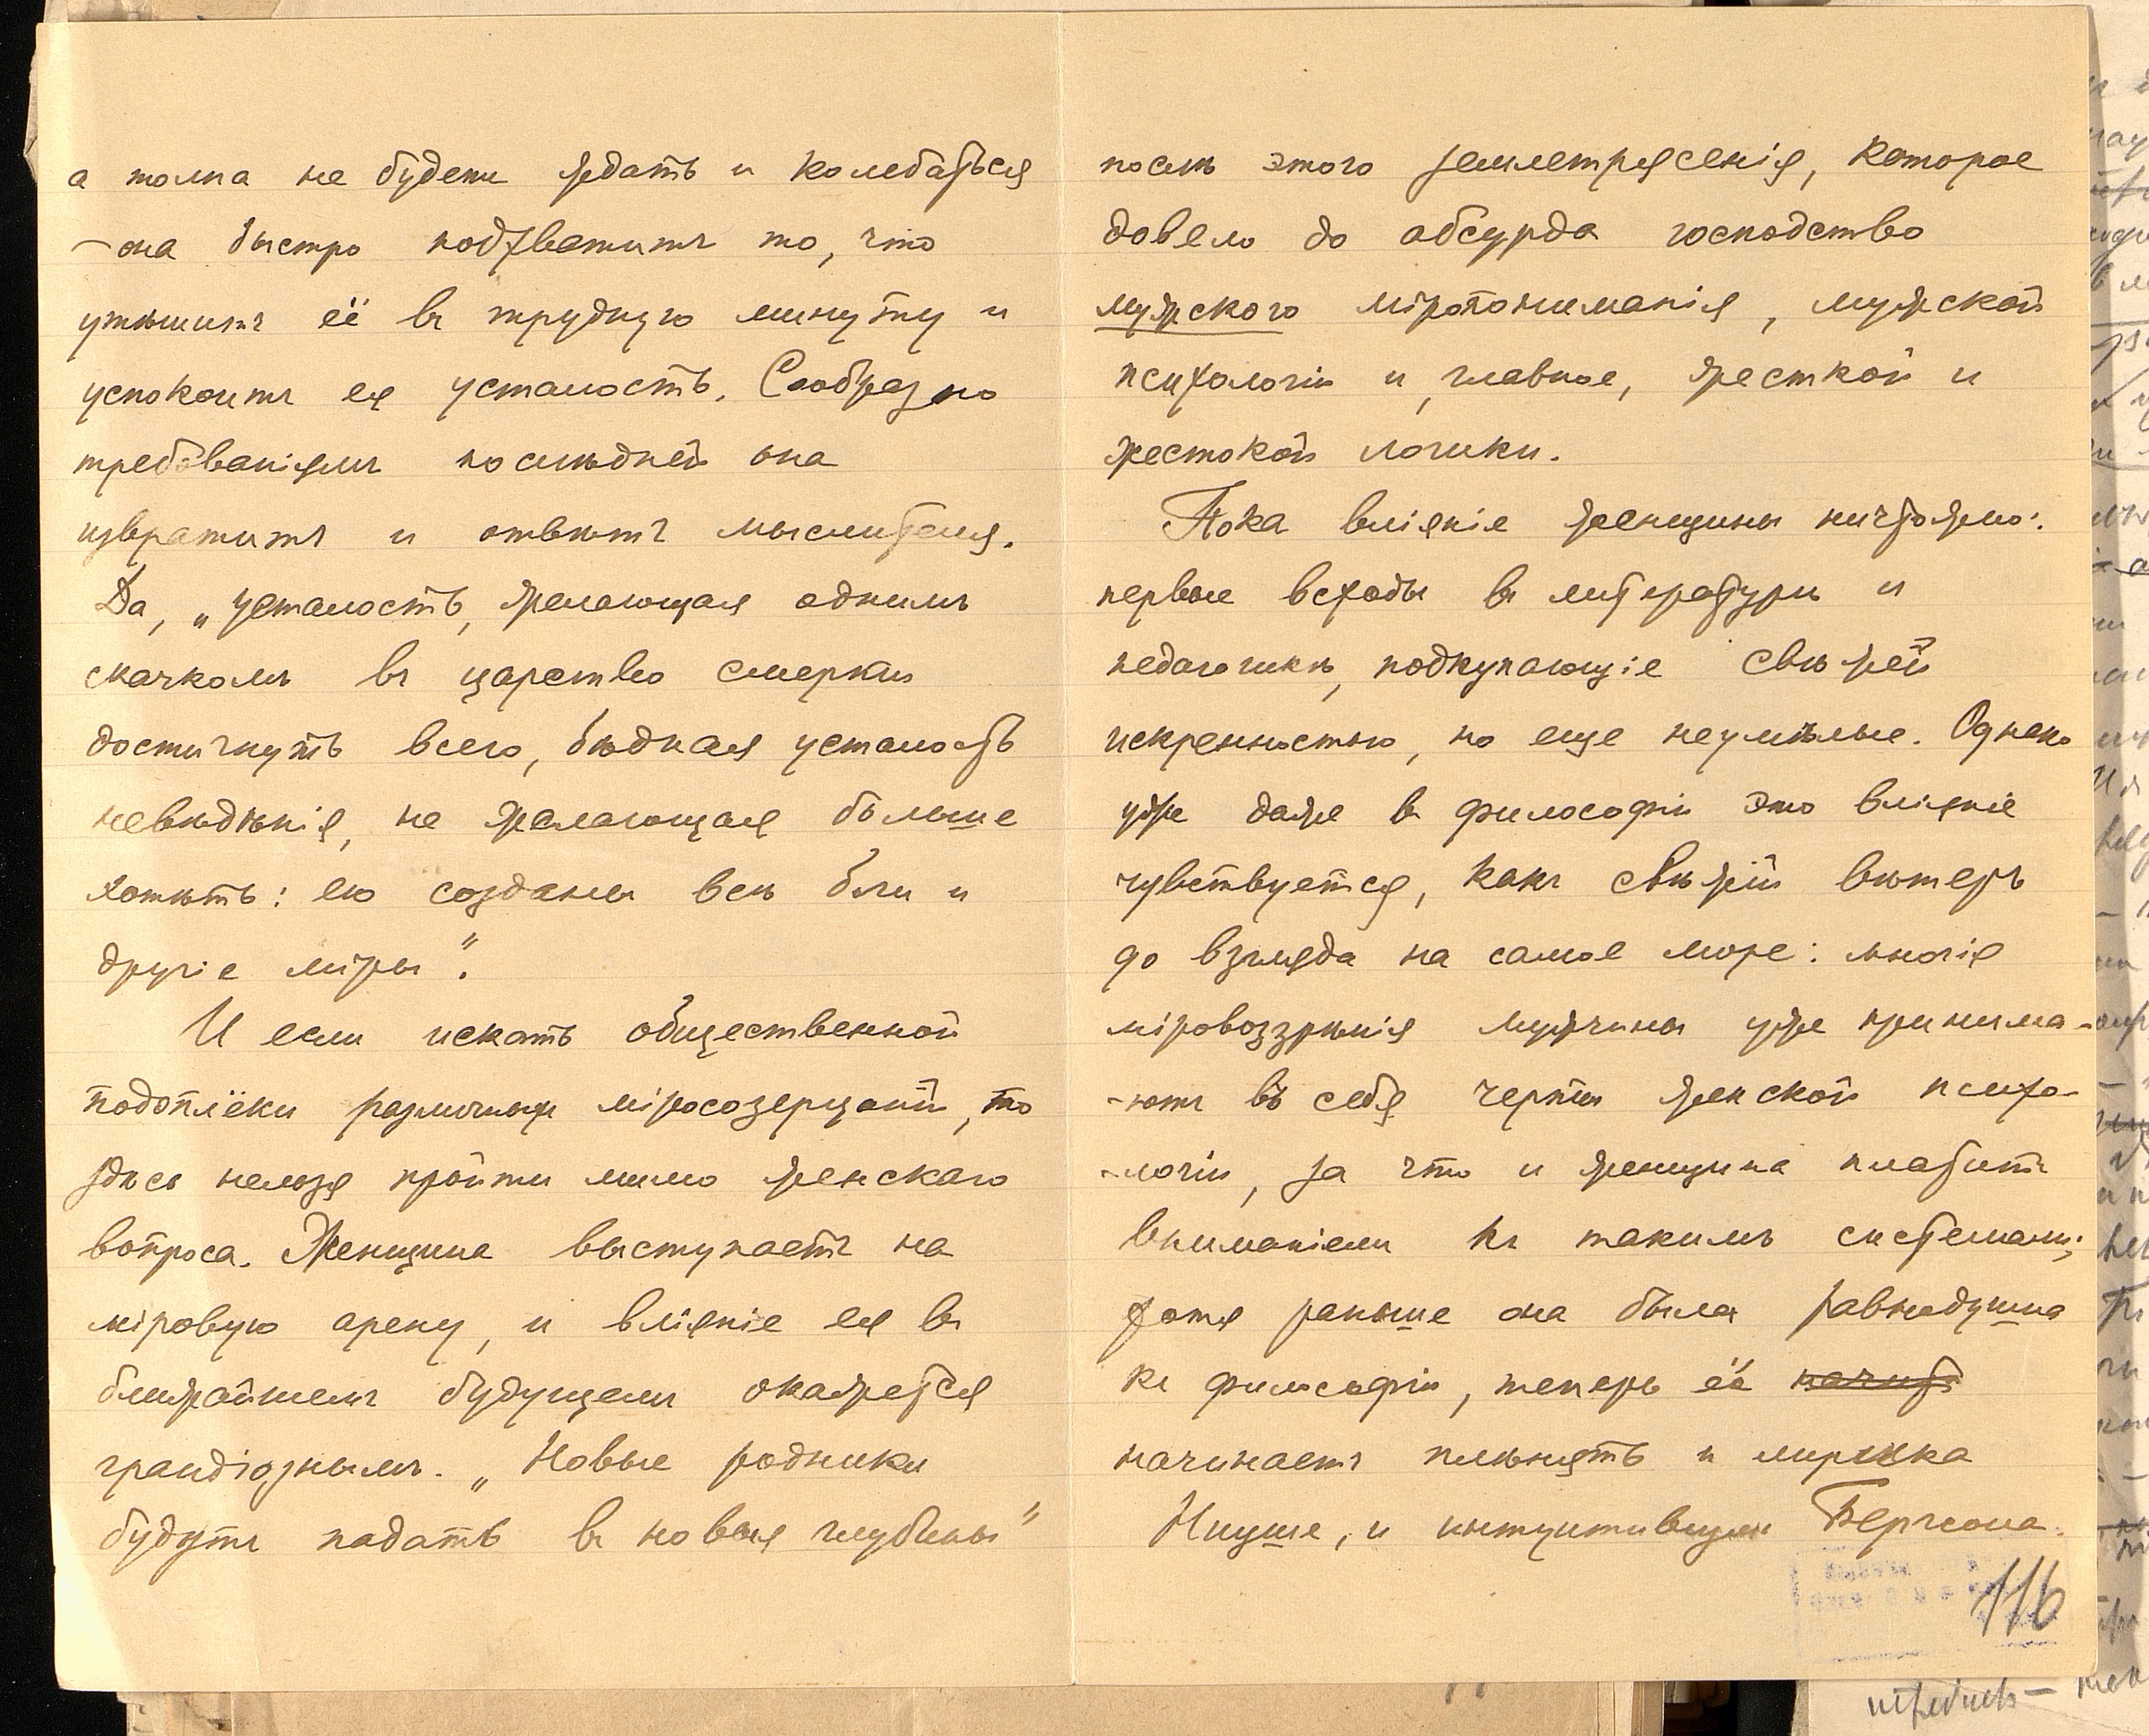 а толпа не будетъ ждать и колебаться
– она быстро подхватитъ то, что
утѣшитъ её въ трудную минуту и
успокоитъ ея усталость. Сообразно
требованіямъ послѣдней она
извратитъ и отвѣтъ мыслителя.
Да, „усталость, желающая однимъ
скачкомъ въ царство смерти
достигнуть всего, бѣдная усталость
невѣдѣнія, не желающая больше
хотѣть: ею созданы всѣ боги и
другіе міры“.
И если искать общественной
подоплёки различныхъ міросозерцаній, то
здѣсь нельзя пройти мимо женскаго
вопроса. Женщина выступаетъ на
міровую арену, и вліяніе ея въ
ближайшемъ будущемъ окажется
грандіознымъ. „Новые родники
будутъ падать въ новыя глубины“
послѣ этого землетрясенія, которое
довело до абсурда господство
мужского міропониманія, мужской
психологіи и, главное, жесткой и
жестокой логики.
Пока вліяніе женщины ничтожно:
первые всходы въ литературѣ и
педагогикѣ, подкупающіе свѣжей
искренностью, но еще неумѣлые. Однако
уже даже въ философіи это вліяніе
чувствуется, какъ свѣжій вѣтеръ
до взгляда на самое море: многія
міровоззрѣнія мужчины уже принима-
-ютъ въ себя черты женской психо-
-логіи, за что и женщина платитъ
вниманіемъ къ такимъ системамъ;
хотя раньше она была равнодушна
къ философіи, теперь её
начинаетъ плѣнять и лирика
Ницше, и интуитивизмъ Бергсона.
116